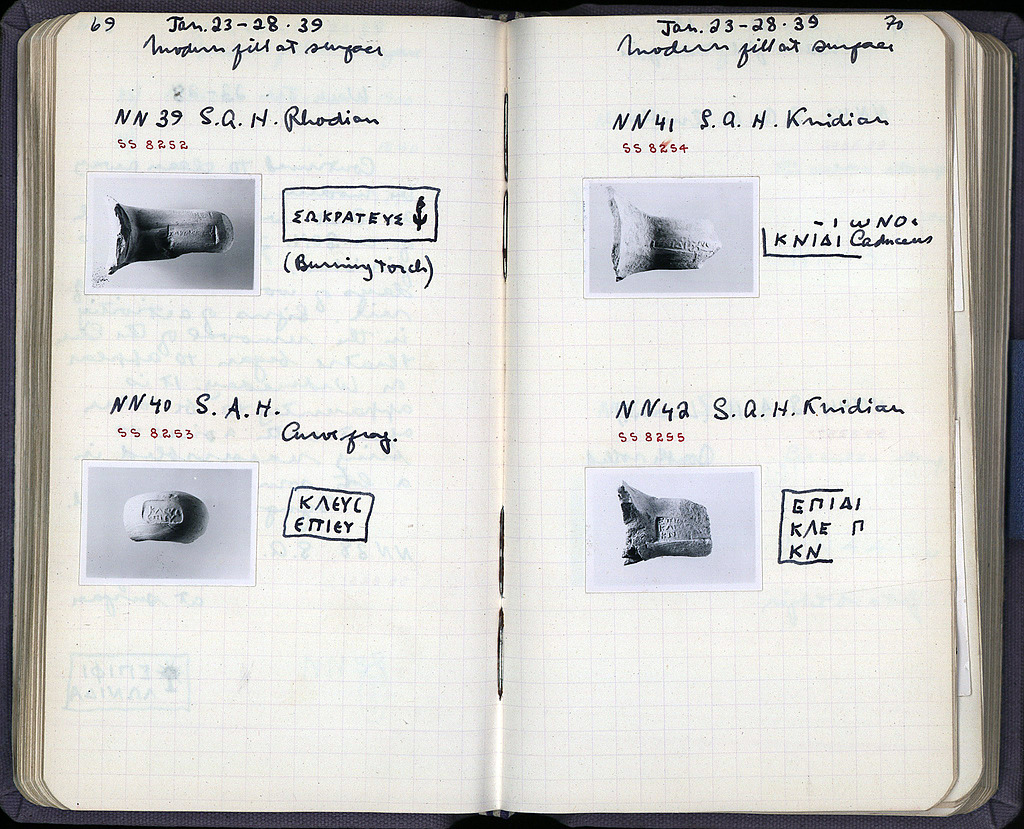 69 Jan. 23-28. 39
Modern fill at surface
NN 39 S.A.H. Rhodian
SS 8252
ΣΩΚΡΑΤΕΥΣ
(Burning Torch)
NN 40 S. A. H.
Curve frag.
SS 8253
ΚΛΕΥϹ
ΕΠΙΕΥ
Jan. 23-28. 39 70
Modern fill at surface
NN 41 S.A.H. Knidian
SS 8254
- Ι ΩΝΟ
ΚΝΙΔΙ Caduceus
NN 42 S.A.H. Knidian
SS 8255
ΕΠΙΔΙ
ΚΛΕ Π
ΚΝ